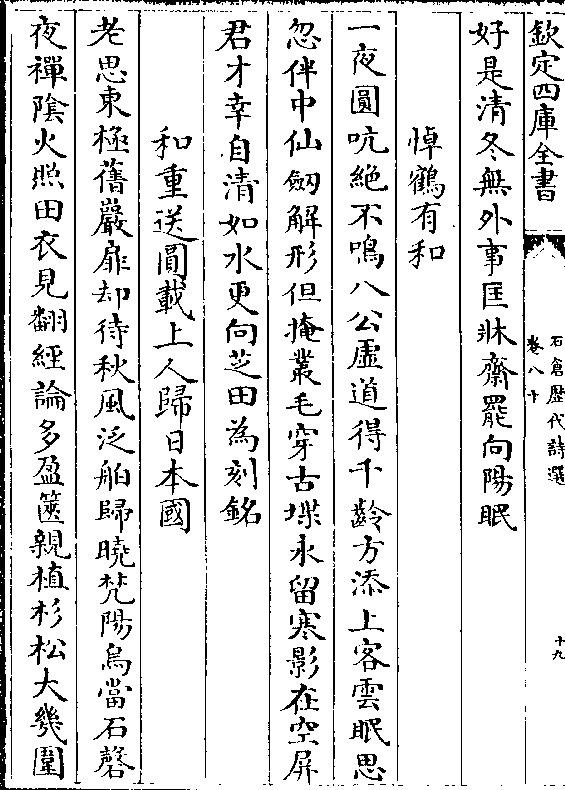 欽定四庫全書
石倉歴代詩選
卷八十
十九
好是清冬無外事匡牀齋罷向陽眠
悼鶴有和
一夜圓吭絶不鳴八公虛道得千齡方添上客雲眠思
忽伴中仙劔解形但掩叢毛穿古堞永留寒影在空屏
君才幸自清如水更向芝田為刻銘
和重送圓載上人歸日本國
老思東極舊巖扉却待秋風泛舶歸曉梵陽烏當石磬
夜禪隂火照田衣見翻經論多盈篋親植杉松大幾圍